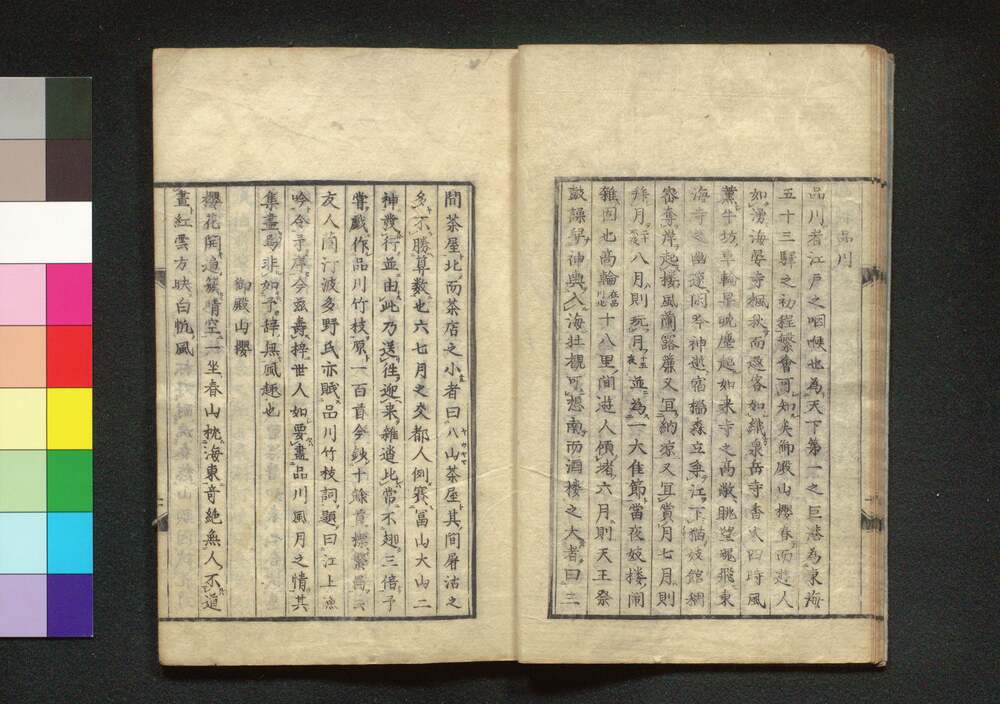 品川
品川者江戸之咽喉也為天下第一之巨港為東海
五十三驛之初程繁會可知矣御殿山櫻春而遊人
如湧海晏寺楓秋而遊客如織泉岳寺香火四時風
薫牛坊車輪早晩塵起如来寺之高敞眺望魂飛東
海寺之幽邃間吟神逝宿檣森立乗江下猫妓館稠
密奪岸起樓風蘭露簾又宜納涼又宜賞月七月則
拜月廿六夜八月則玩月十五夜並為一大佳節當夜妓樓閙
雜因北高輪在品川北十八里間遊人傾堵六月則天王祭
鼓譟舉神輿入海壮觀可想南而酒樓之大者曰三
間茶屋北而茶店之小者曰八山茶屋其間屠沽之
多不勝算數也六七月之交都人例賽冨山大山二
神發行並由此乃送往迎来雜遝比常不翅三倍予
嘗戯作品川竹枝原一百首今鈔十餘首
友人蘭汀波多野氏亦賦品川竹枝詞題曰江上漁
吟今予序今茲壽梓世人如要畫品川風月之情其
集盡焉非如予辞無風趣也
御殿山櫻
櫻花開遍簇晴空一坐春山枕海東奇絶無人不道
畫紅雲方映白帆風